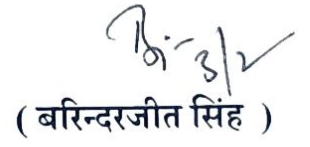 3/2
( बरिन्दरजीत सिंह )